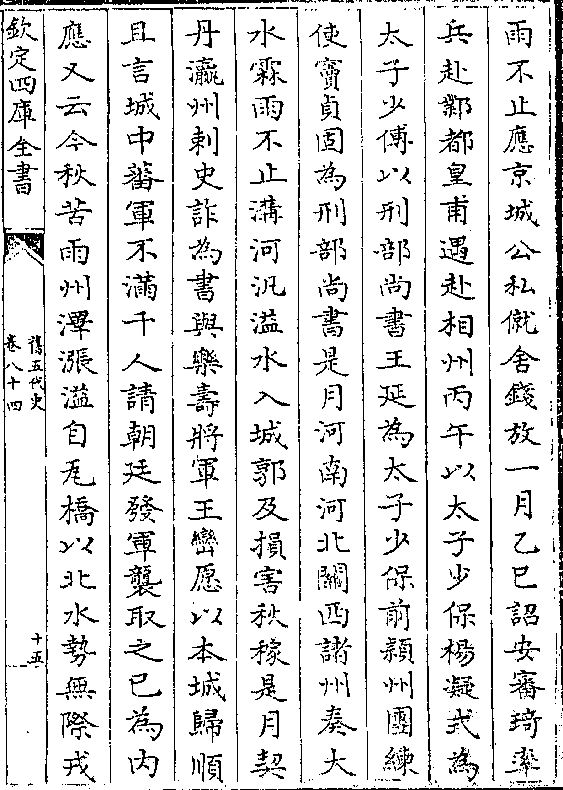 雨不止應京城公私僦舍錢放一月乙巳詔安審琦率
兵赴鄴都皇甫遇赴相州丙午以太子少保楊凝式為
太子少傅以刑部尚書王延為太子少保前潁州團練
使竇貞固為刑部尚書是月河南河北關西諸州奏大
水霖雨不止溝河汎溢水入城郭及損害秋稼是月契
丹瀛州刺史詐為書與樂壽將軍王巒愿以本城歸順
且言城中蕃軍不滿千人請朝廷發軍襲取之已為内
應又云今秋苦雨州潭漲溢自瓦橋以北水勢無際戎
欽定四庫全書
舊五代史
卷八十四
十五